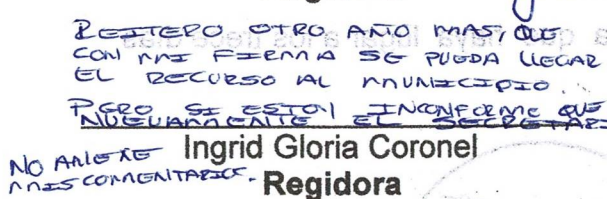 REITERO OTRO AÑO MAS, QUE
CON MI FIRMA SE PUEDA LLEGAR
EL RECURSO AL MUNICIPIO.
PERO SI ESTOY INCONFORME QUE
NUEVAMENTE EL SECRETARI
NO ANEXE
MIS COMENTARIOS.
Ingrid Gloria Coronel
Regidora